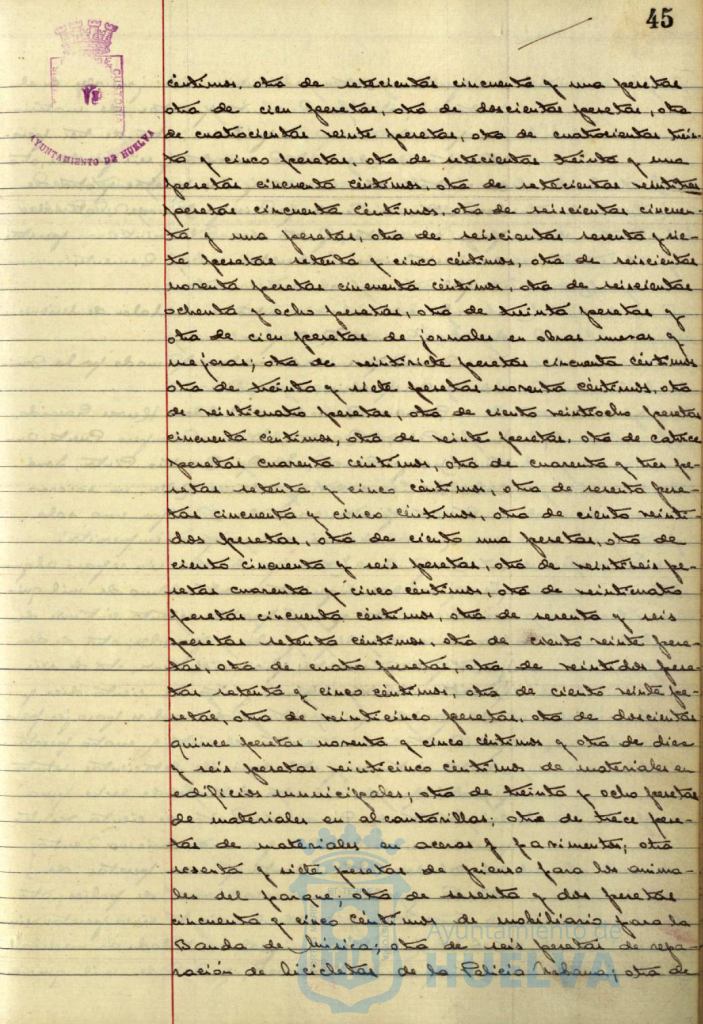 45
AYUNTAMIENTO DE HUELVA
céntimos, otra de setecientas cincuenta y una pesetas
otra de cien pesetas, otra de doscientas pesetas, otra
de cuatrocientas veinte pesetas, otra de cuatrocientas trein-
ta y cinco pesetas, otra de setecientas treinta y una
pesetas cincuenta céntimos, otra de setecientas veintitres
pesetas cincuenta céntimos, otra de seiscientas cincuen-
ta y una pesetas, otra de seiscientas sesenta y sie-
te pesetas setenta y cinco céntimos, otra de seiscientas
noventa pesetas cincuenta céntimos, otra de seiscientas
ochenta y ocho pesetas, otra de treinta pesetas y
otra de cien pesetas de jornales en obras nuevas y
mejoras; otra de veintisiete pesetas cincuenta céntimos
otra de treinta y siete pesetas noventa céntimos, otra
de veinticuatro pesetas, otra de ciento veintiocho pesetas
cincuenta céntimos, otra de veinte pesetas, otra de catorce
pesetas cuarenta céntimos, otra de cuarenta y tres pe-
setas setenta y cinco céntimos, otra de sesenta pese-
tas cincuenta y cinco céntimos, otra de ciento veinti-
dos pesetas, otra de ciento una pesetas, otra de
ciento cincuenta y seis pesetas, otra de veintiseis pe-
setas cuarenta y cinco céntimos, otra de veinticuatro
pesetas cincuenta céntimos, otra de sesenta y seis
pesetas setenta céntimos, otra de ciento veinte pese-
tas, otra de cuatro pesetas, otra de veintidos pese-
tas setenta y cinco céntimos, otra de ciento veinte pe-
setas, otra de veinticinco pesetas, otra de doscientas
quince pesetas noventa y cinco céntimos y otra de diez
y seis pesetas veinticinco céntimos de materiales en
edificios municipales; otra de treinta y ocho pesetas
de materiales en alcantarillas; otra de trece pese-
tas de materiales en aceras y pavimentos; otra
sesenta y siete pesetas de pienso para los anima-
les del parque; otra de sesenta y dos pesetas
cincuenta y cinco céntimos de mobiliario para la
Banda de Música; otra de seis pesetas de repa-
ración de bicicletas de la Policía Urbana; otra de
Ayuntamiento de
HUELVA